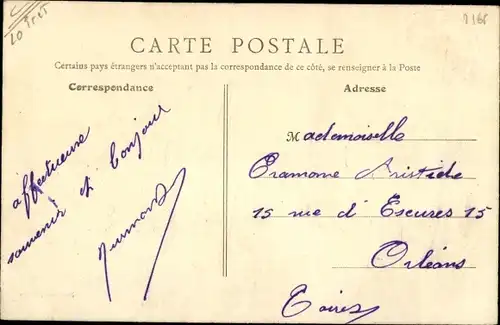 Loiret
CARTE POSTALE
Certains pays étrangers n'acceptant pas la correspondance de ce côté, se renseigner à la Poste
Correspondance
Adresse
affectueuse
souvenir et bonjour
Mademoiselle
Cramone Aristide
15 rue d'Escures 15
Orléans